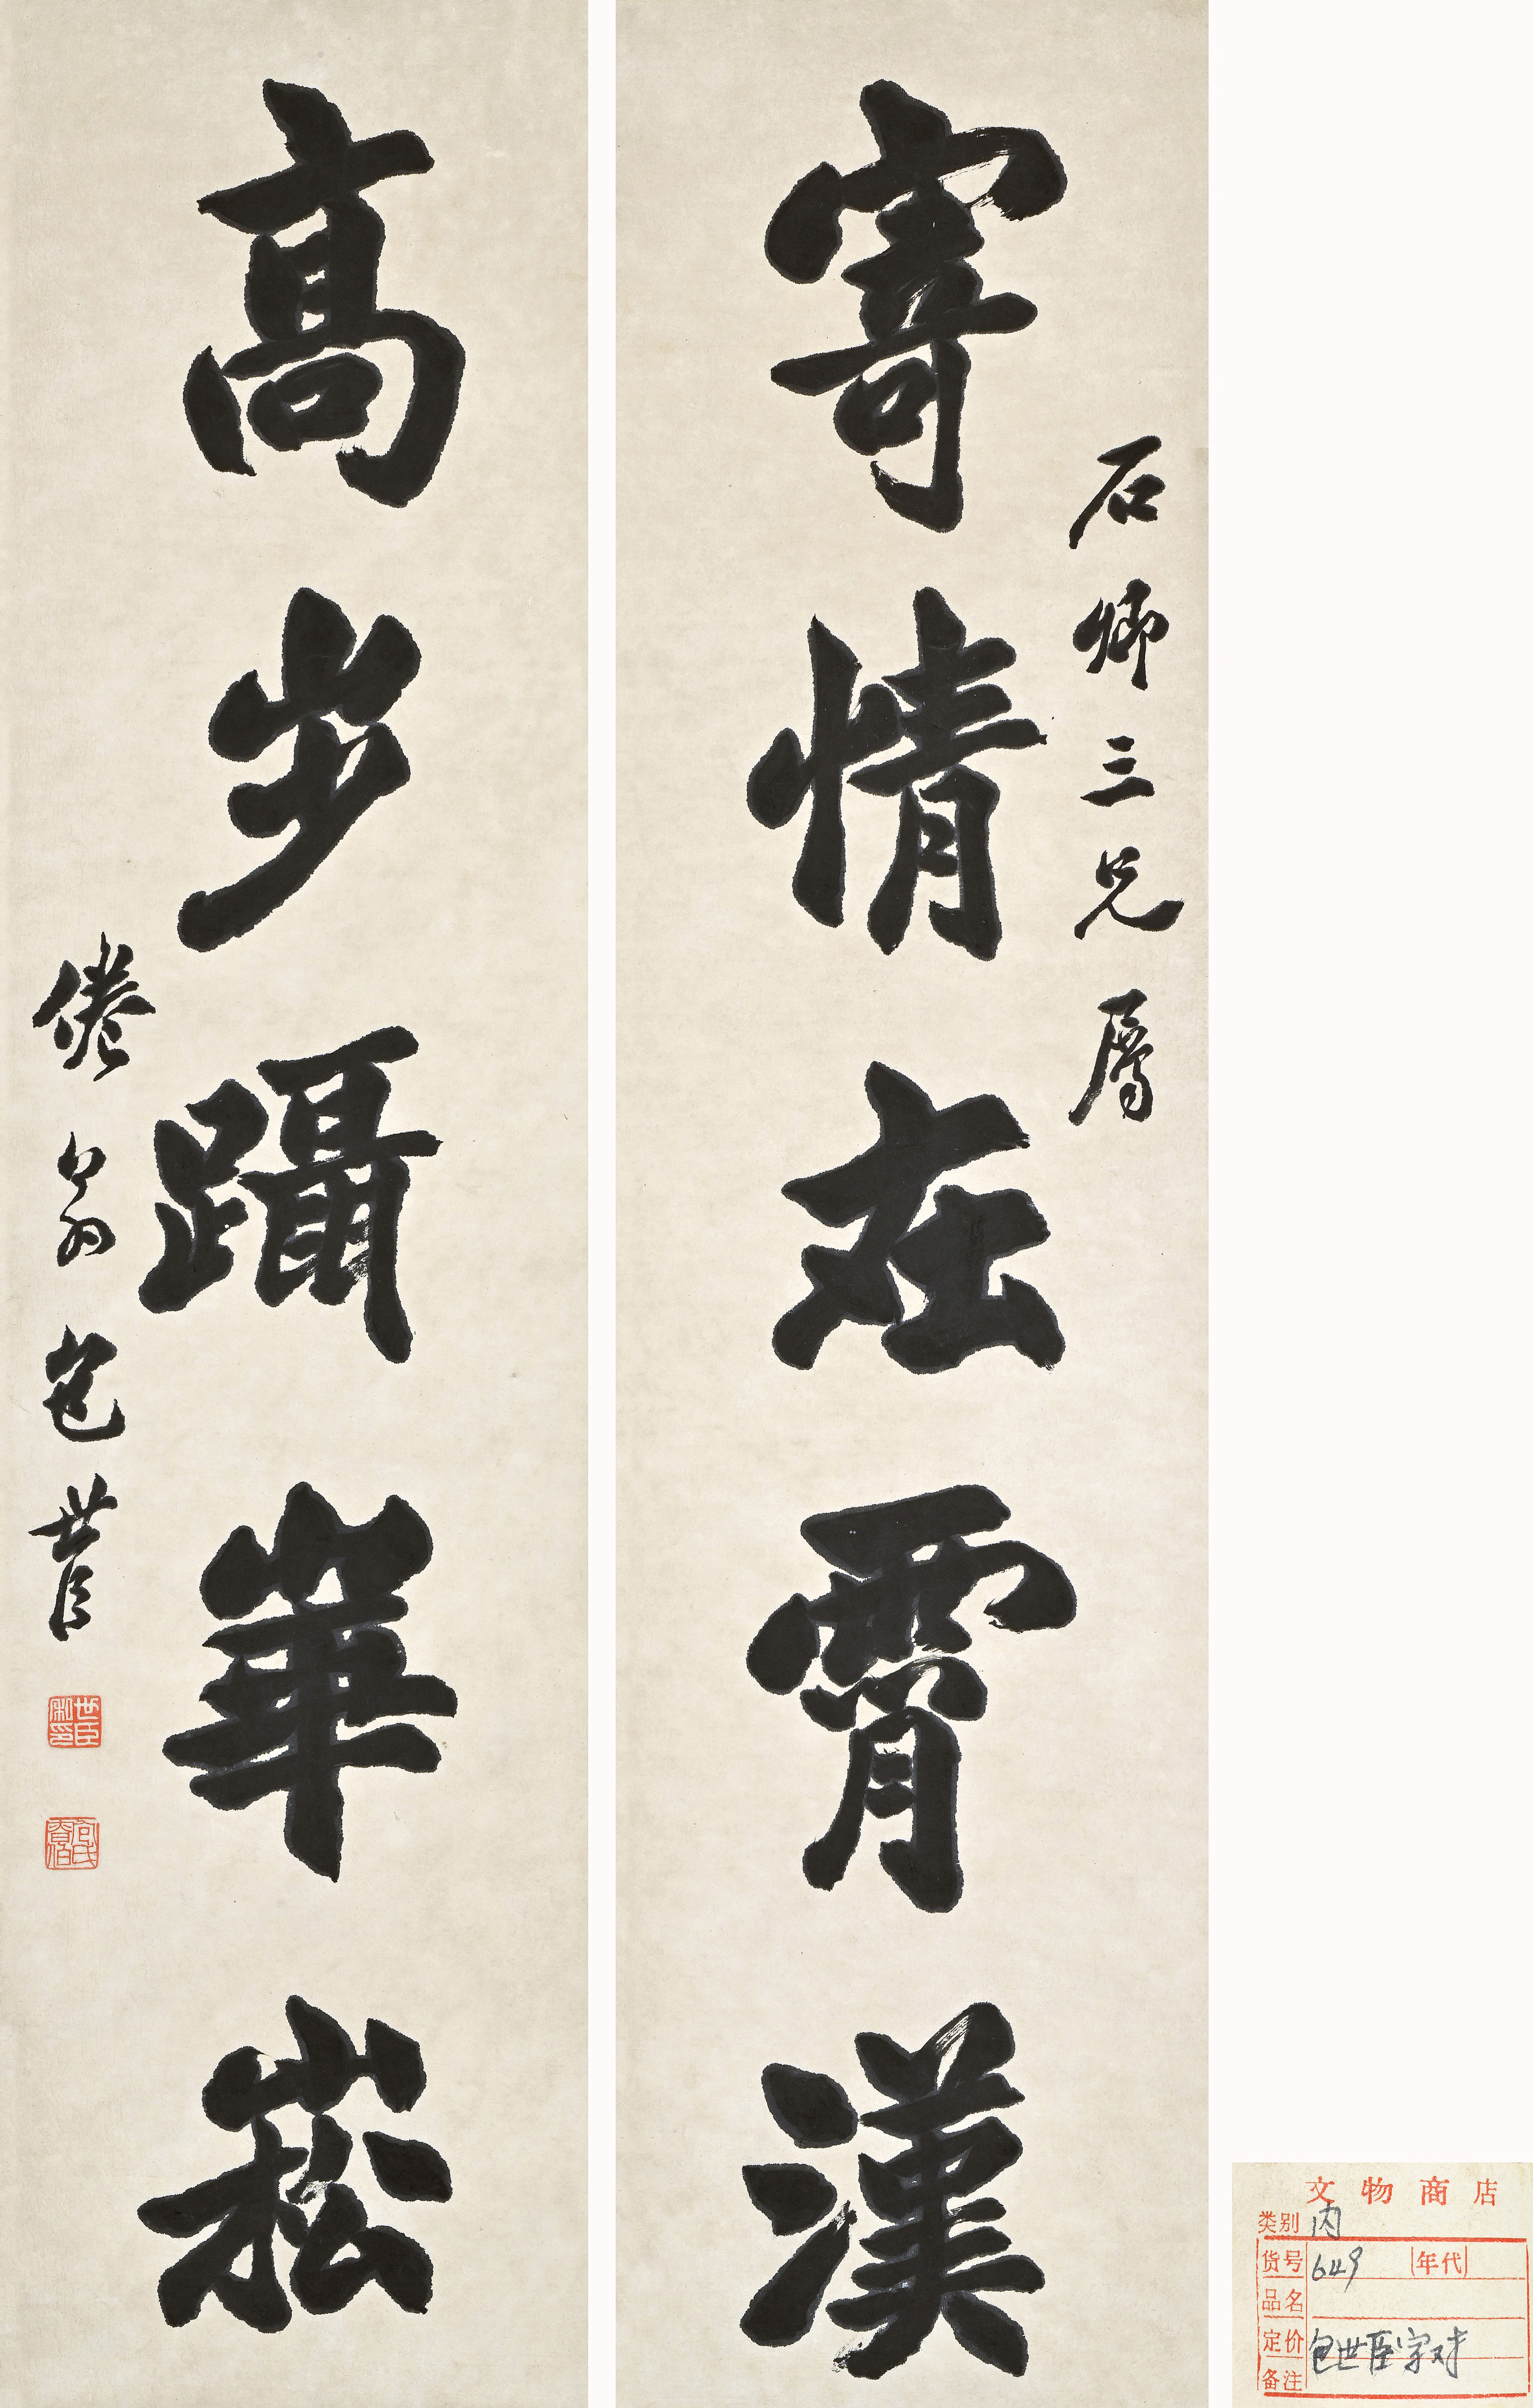 寄情在霄漢
石卿三兄屬
高步躡崋崧
倦翁包世臣
世臣
文物商店
类别 内
货号 649 年代
品名
定价 包世臣字对
备注